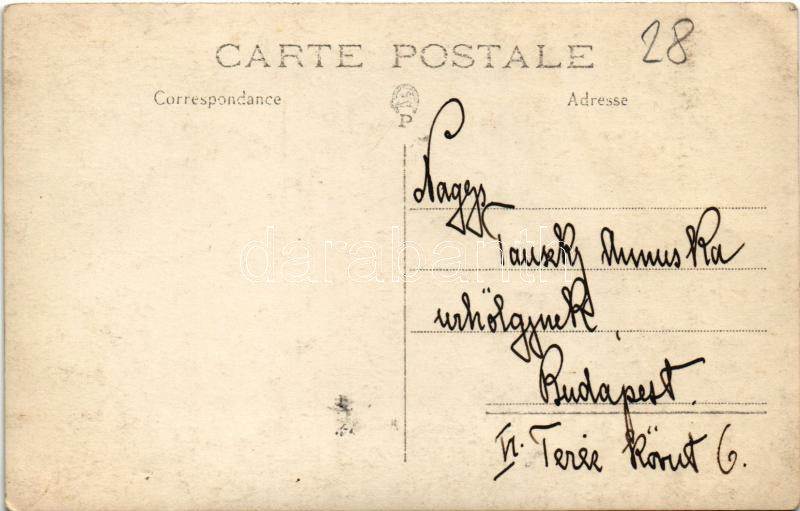 28
CARTE POSTALE
Correspondance
Adresse
P
Nagys.
Tauszky Annuska
urhölgynek
Budapest.
VI. Teréz körut 6.
darabanth